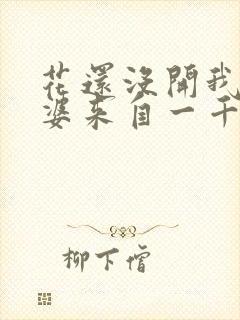 花還沒開我
婆來自一千
柳下僧